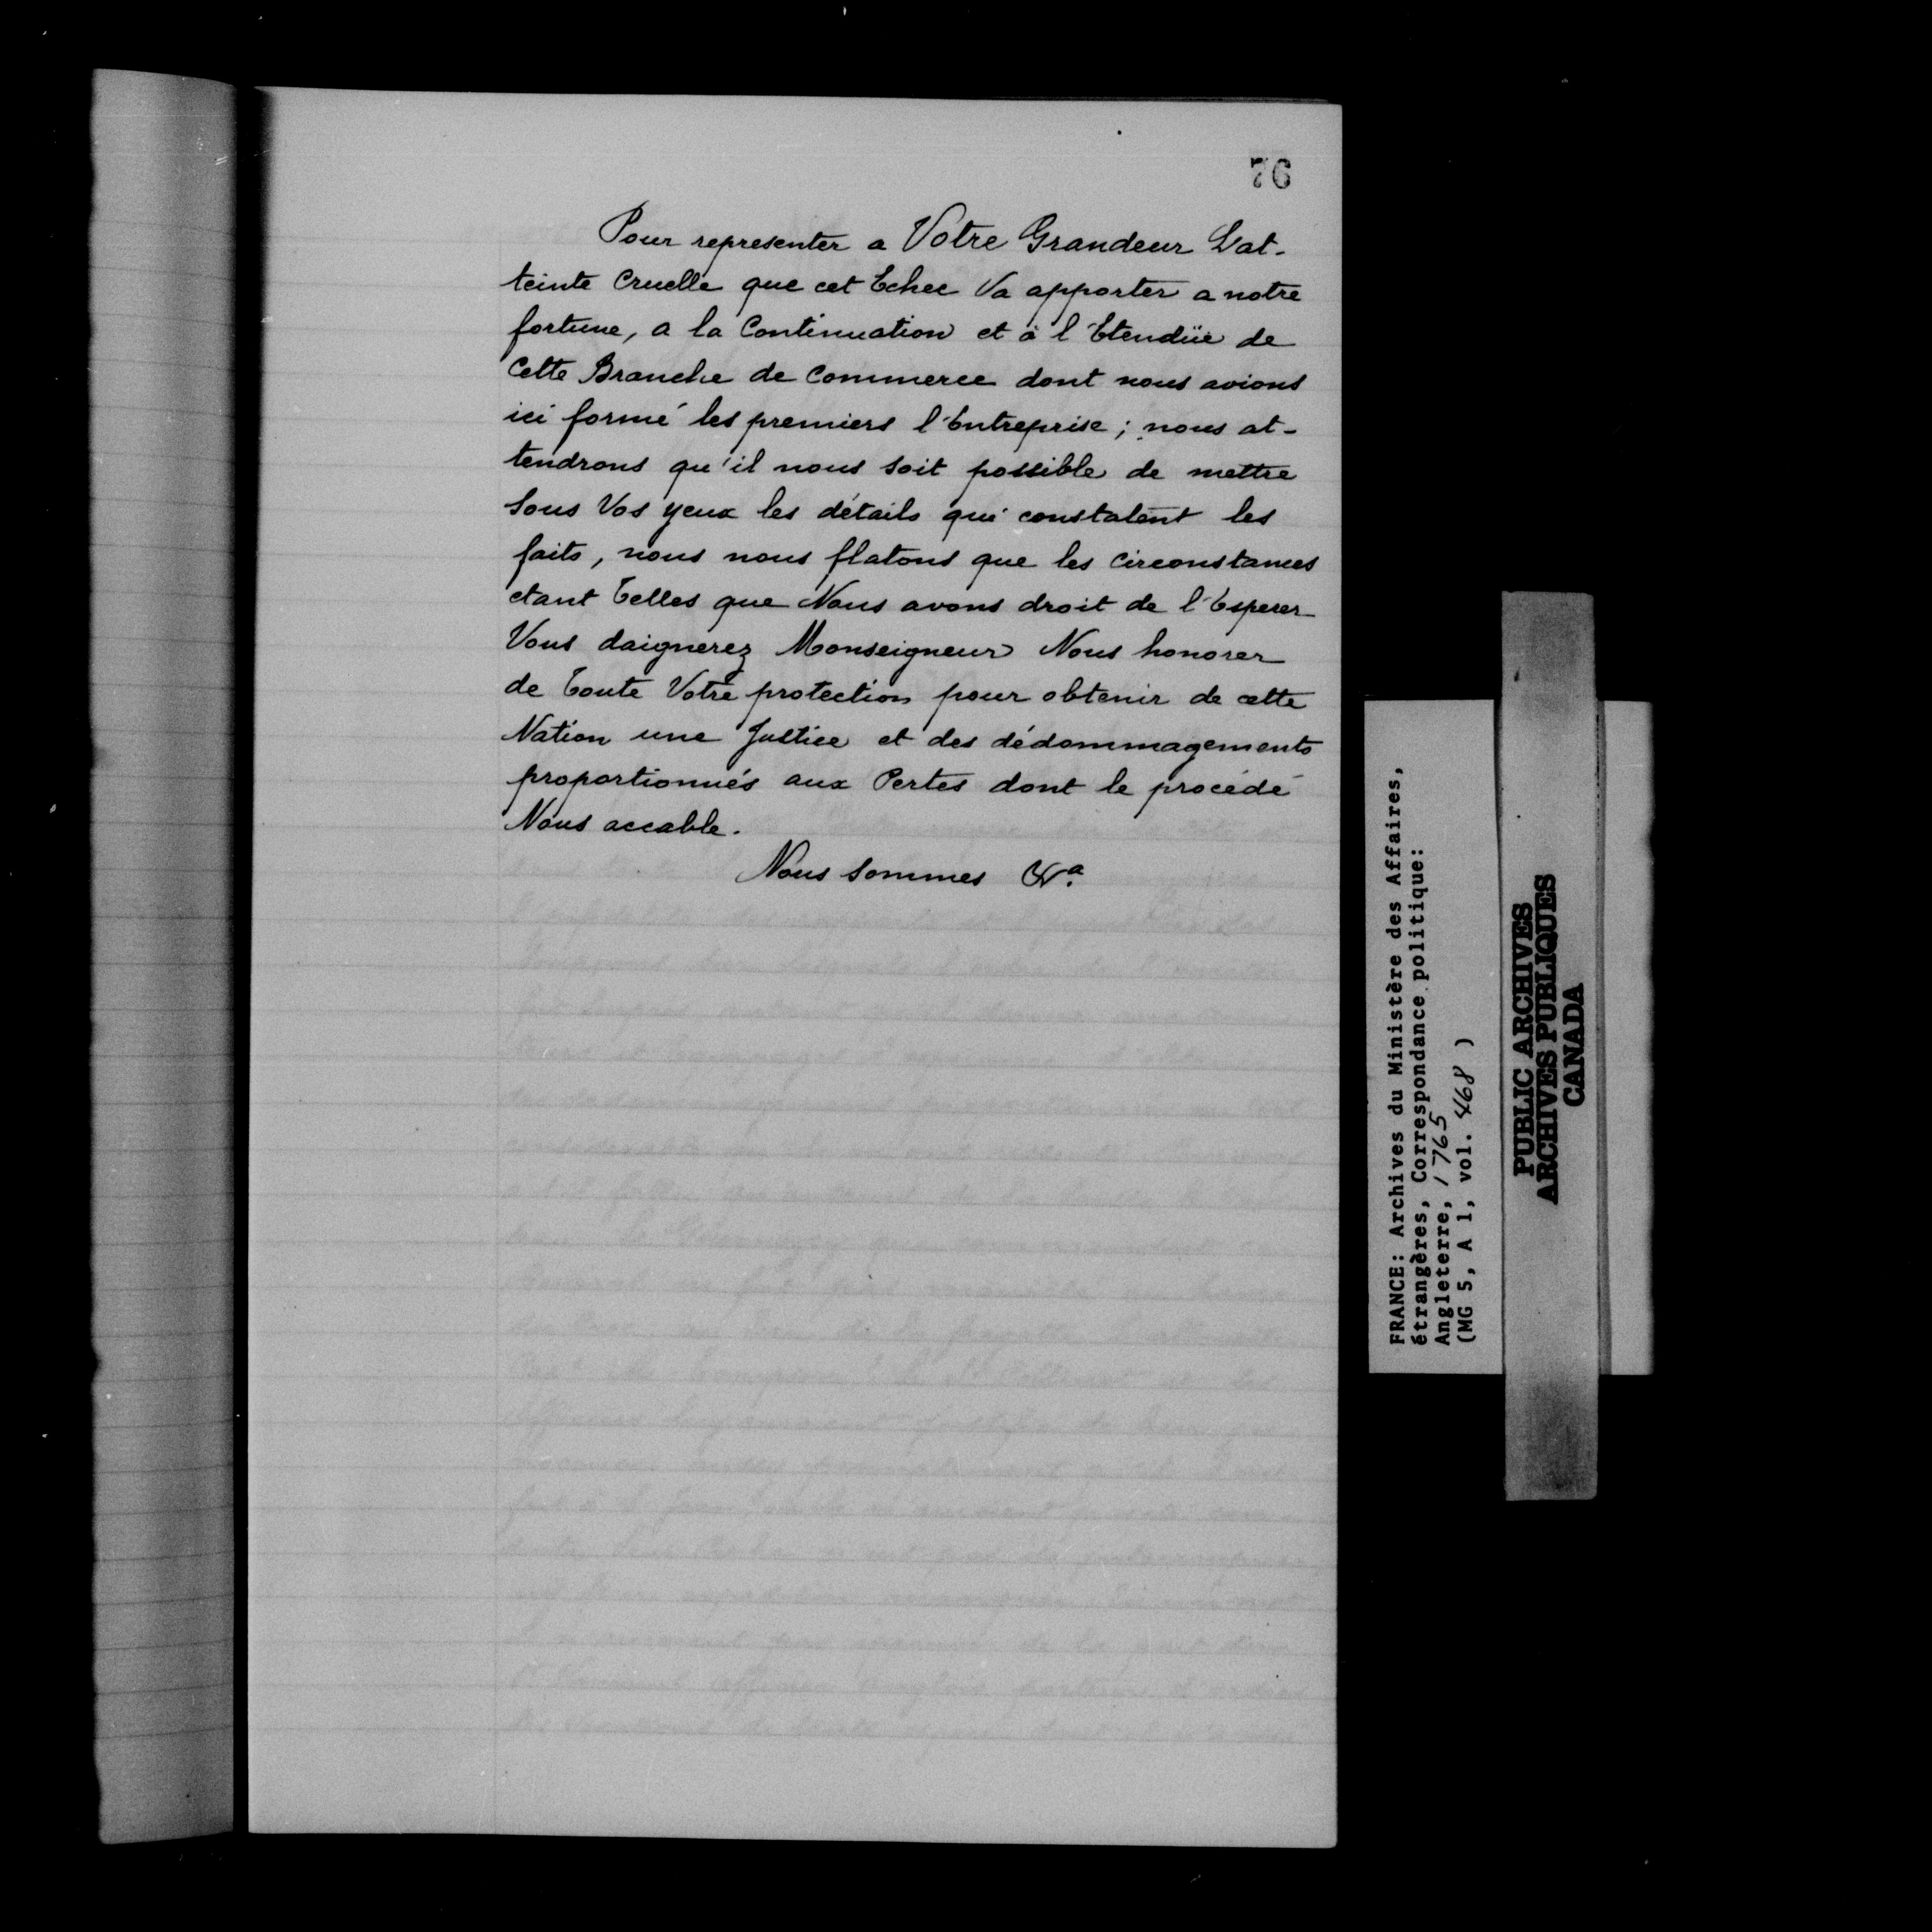 76
Pour representer a Votre Grandeur L'at-
teinte Cruelle que cet Echec Va apporter a notre
fortune, a la Continuation et à l'Etendüe de
Cette Branche de Commerce dont nous avions
ici formé les premiers l'Entreprise; nous at-
tendrons qu'il nous soit possible de mettre
Sous Vos yeux les détails qui constatent les
faits, nous nous flatons que les Circonstances
etant Telles que Nous avons droit de l'Esperer
Vous daignerez Monseigneur Nous honorer
de Toute Votre protection pour obtenir de cette
Nation une Justice et des dédommagements
proportionnés aux Pertes dont le procédé
Nous accable.
Nous sommes &a.
FRANCE: Archives du Ministère des Affaires,
étrangères, Correspondance politique:
Angleterre, 1765
(MG 5, A 1, vol. 468 )
PUBLIC ARCHIVES
ARCHIVES PUBLIQUES
CANADA